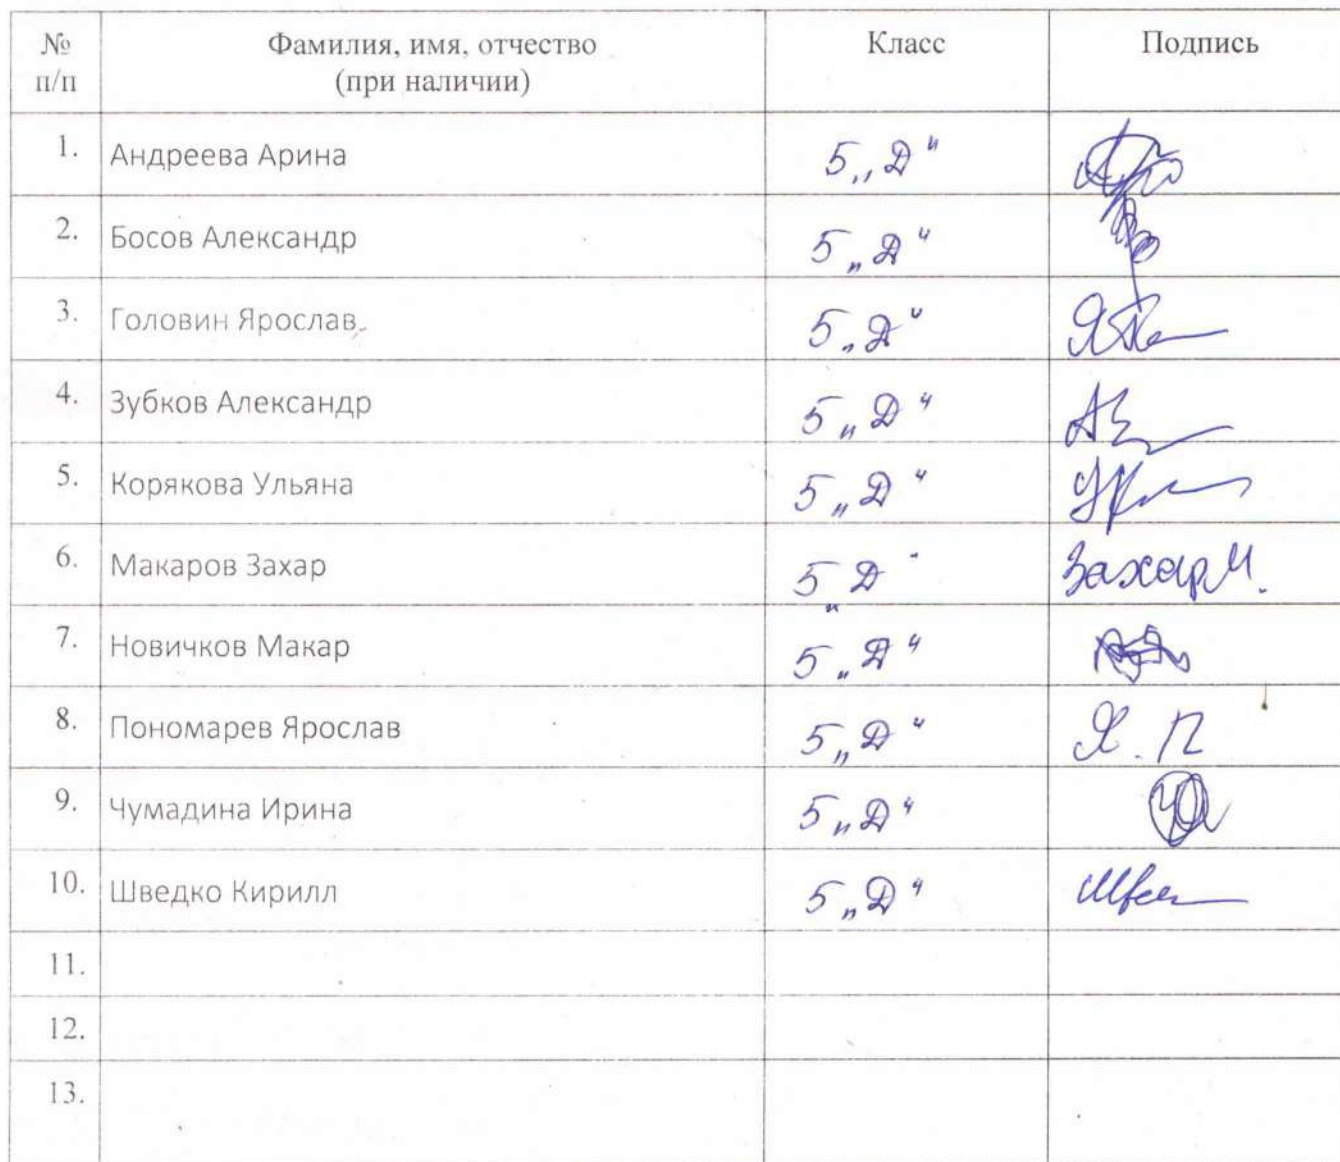 № п/п Фамилия, имя, отчество (при наличии) Класс Подпись
1. Андреева Арина 5 „Д“
2. Босов Александр 5 „Д“
3. Головин Ярослав 5 „Д“
4. Зубков Александр 5 „Д“
5. Корякова Ульяна 5 „Д“
6. Макаров Захар 5 „Д“ Захар М.
7. Новичков Макар 5 „Д“
8. Пономарев Ярослав 5 „Д“ Я. П
9. Чумадина Ирина 5 „Д“
10. Шведко Кирилл 5 „Д“
11.
12.
13.